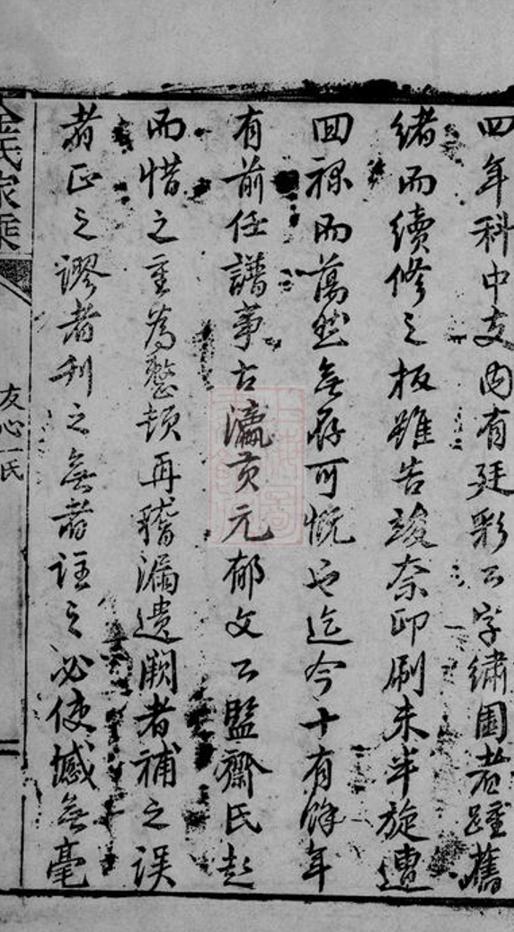 四年科中支內有廷彩公字繡圃者踵舊
緒而續修之板雖告竣奈印刷未半旋遭
回祿而蕩然無存可慨也迄今十有餘年
有前任譜事古瀛貢元郁文公監齋氏起
而惜之重為整頓再稽漏遺闕者補之誤
者正之謬者刊之無者註之必使憾無毫
金氏家乘
友心一氏